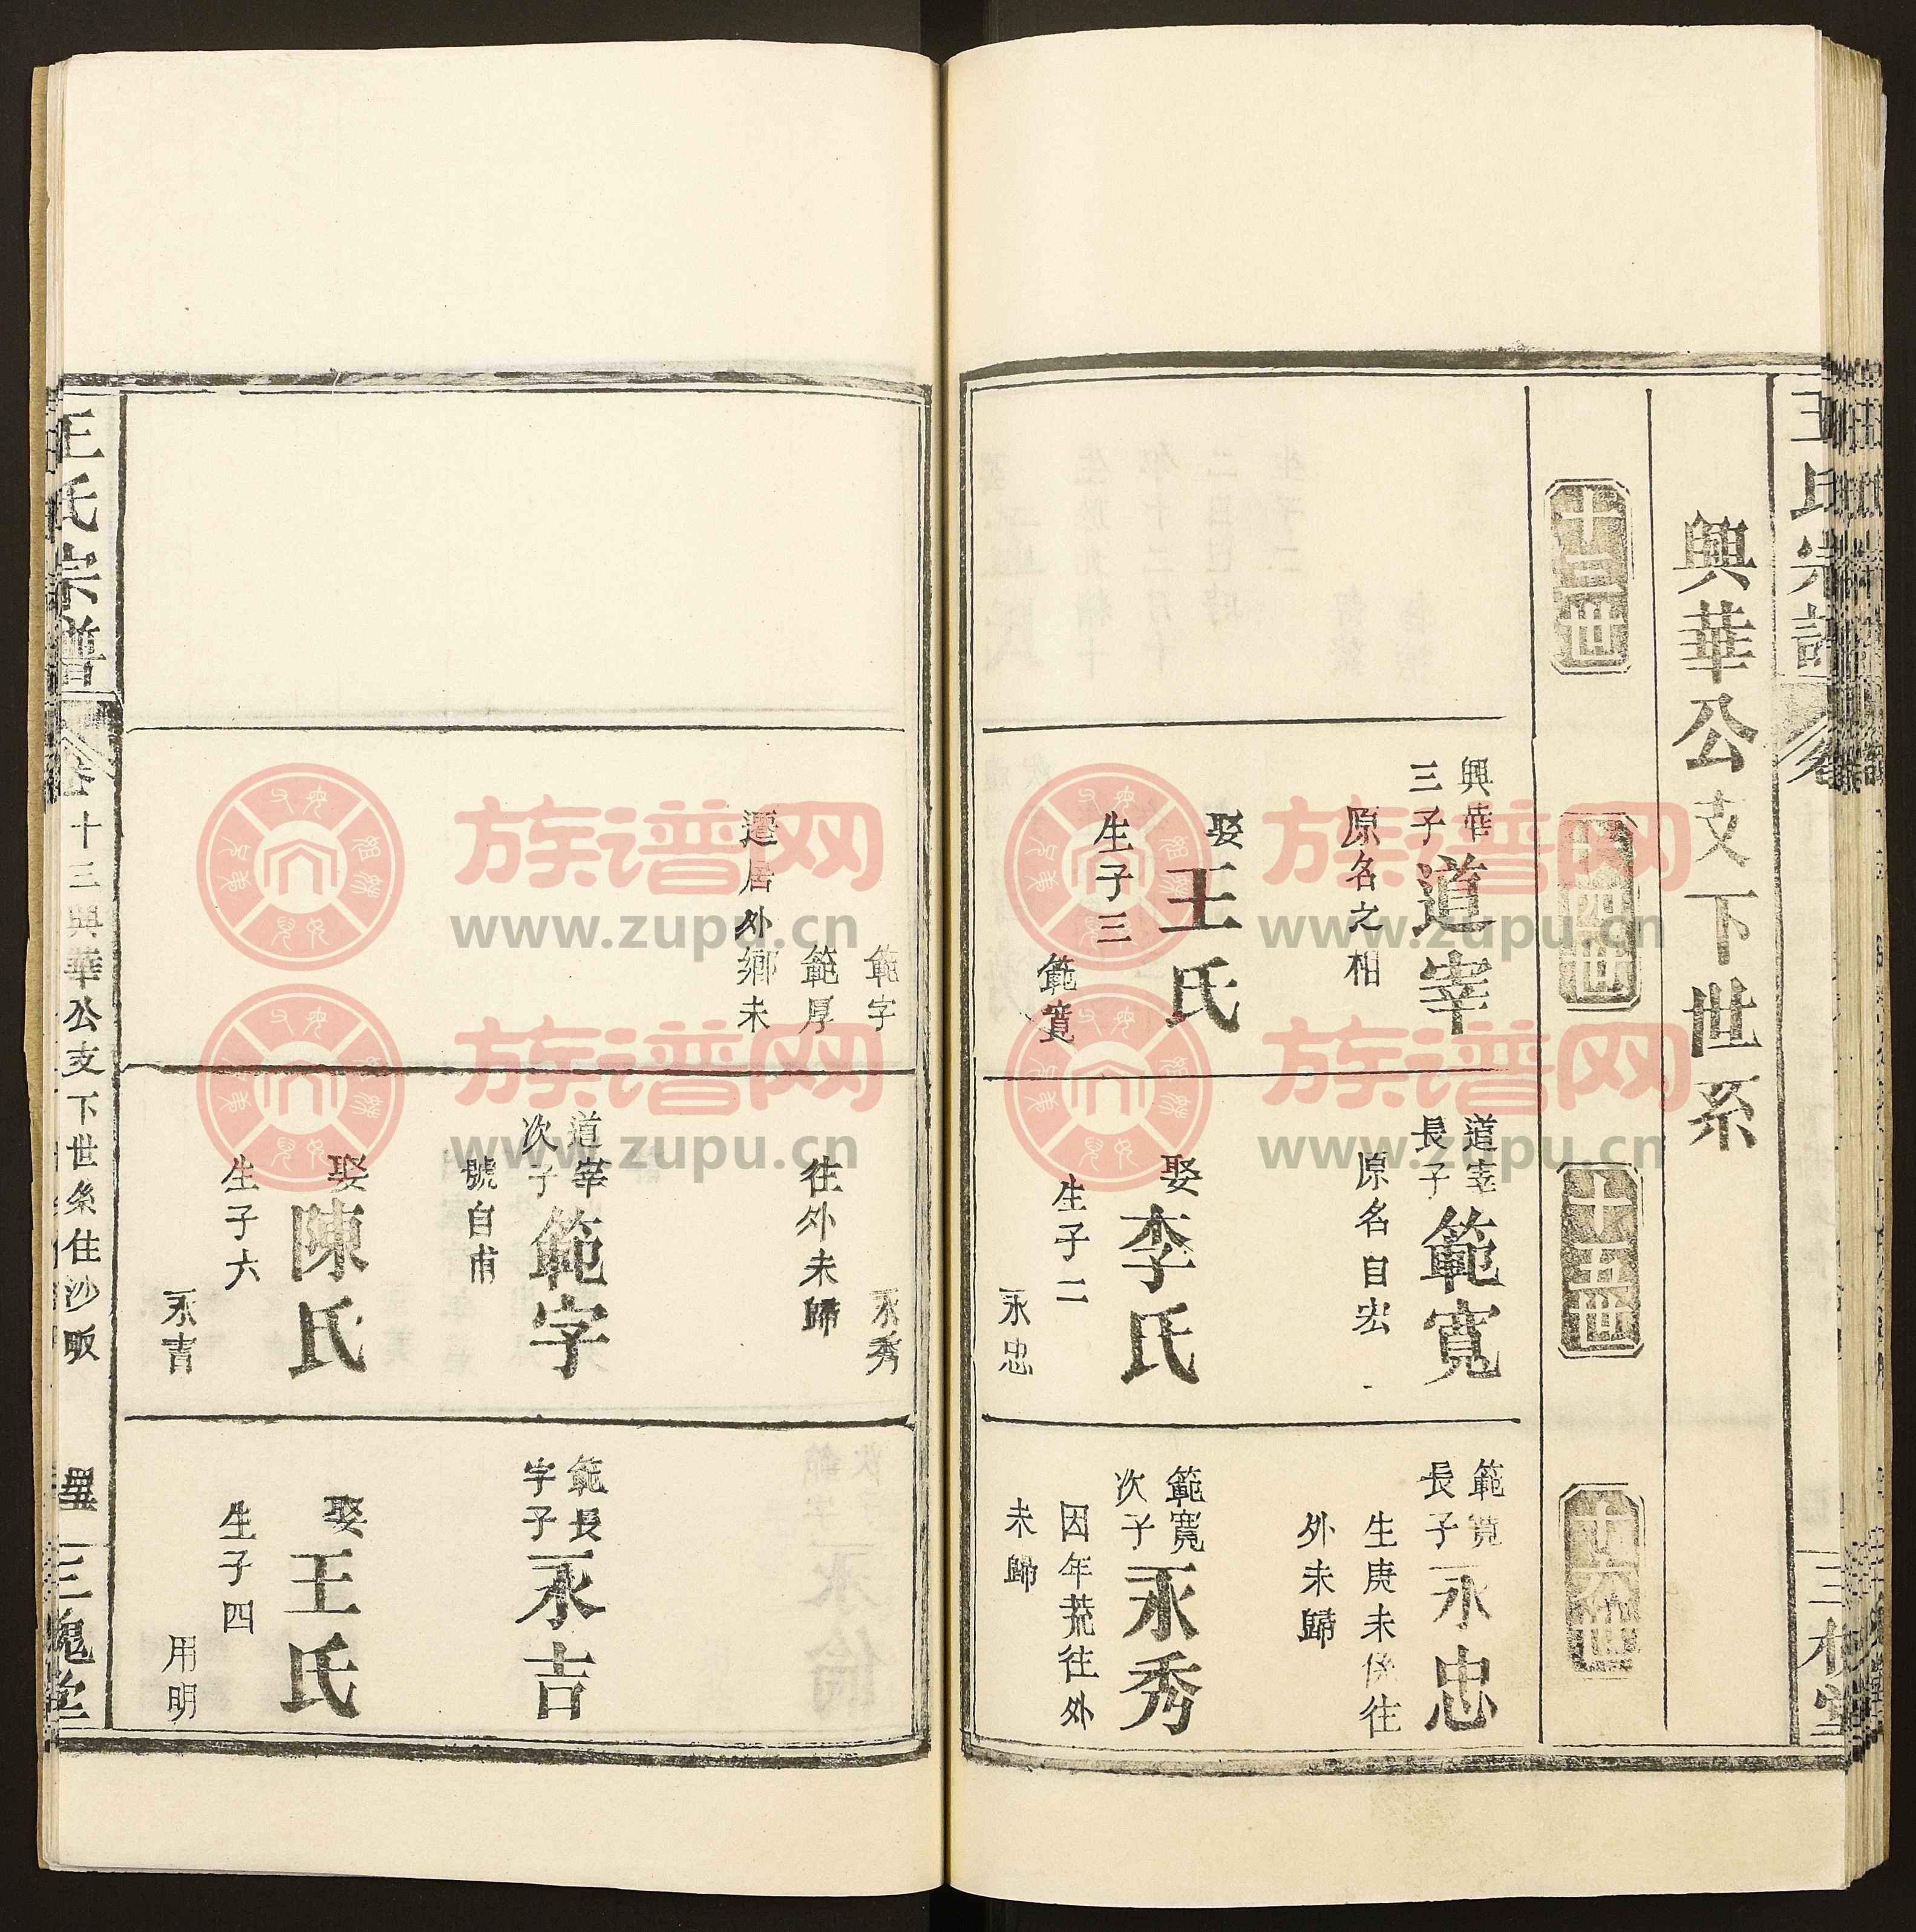 王氏宗譜
三槐堂
興華公支下世系
十三世
十四世
十五世
十六世
興華
三子
道宰
原名之相
娶
王氏
生子三
範寬
範字
範厚
遷居外鄉未
道宰
長子
範寬
原名自宏
娶
李氏
生子二
永忠
永秀
往外未歸
道宰
次子
範字
號自甫
娶
陳氏
生子六
永吉
範寬
長子
永忠
生庚未俻往
外未歸
範寬
次子
永秀
因年荒往外
未歸
範長
字子
永吉
娶
王氏
生子四
用明
王氏宗譜
卷十三興華公支下世系住沙畈
三槐堂
族谱网
www.zupu.cn
族谱网
www.zupu.cn
族谱网
www.zupu.cn
族谱网
www.zupu.cn